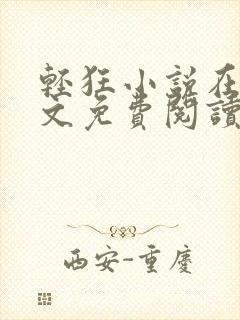 輕狂小說在
文免費閱讀
西安-重慶